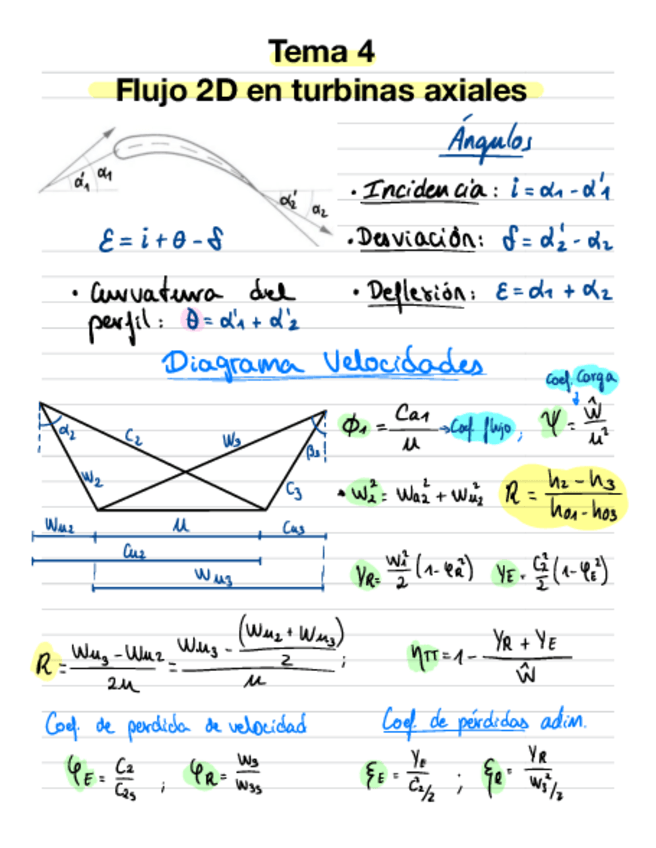 Tema 4
Flujo 2D en turbinas axiales
α'₁ α₁
α'₂ α₂
ε = i + θ - δ
Ángulos
· Incidencia : i = α₁ - α'₁
· Desviación: δ = α'₂ - α₂
· Curvatura del perfil: θ = α'₁ + α'₂
· Deflexión: ε = α₁ + α₂
Diagrama Velocidades
α₂ C₂ W₃ β₃
W₂ C₃
Wu₂ u Cu₃
Cu₂
Wu₃
Φ₁ = Ca₁ / u → Coef flujo ; coef. Carga ψ = Ŵ / u²
· W₂² = Wa₂² + Wu₂² R = (h₂ - h₃) / (h₀₁ - h₀₃)
Y_R = W₁²/2 (1 - φ_R²) Y_E = C₂²/2 (1 - φ_E²)
R = (Wu₃ - Wu₂) / 2u = (Wu₃ - (Wu₂ + Wu₃)/2) / u ;
η_TT = 1 - (Y_R + Y_E) / Ŵ
Coef. de perdida de velocidad
φ_E = C₂ / C₂s ; φ_R = W₃ / W₃s
Coef. de pérdidas adim.
ξ_E = Y_E / C₂/2 ; ξ_R = Y_R / W₃²/2